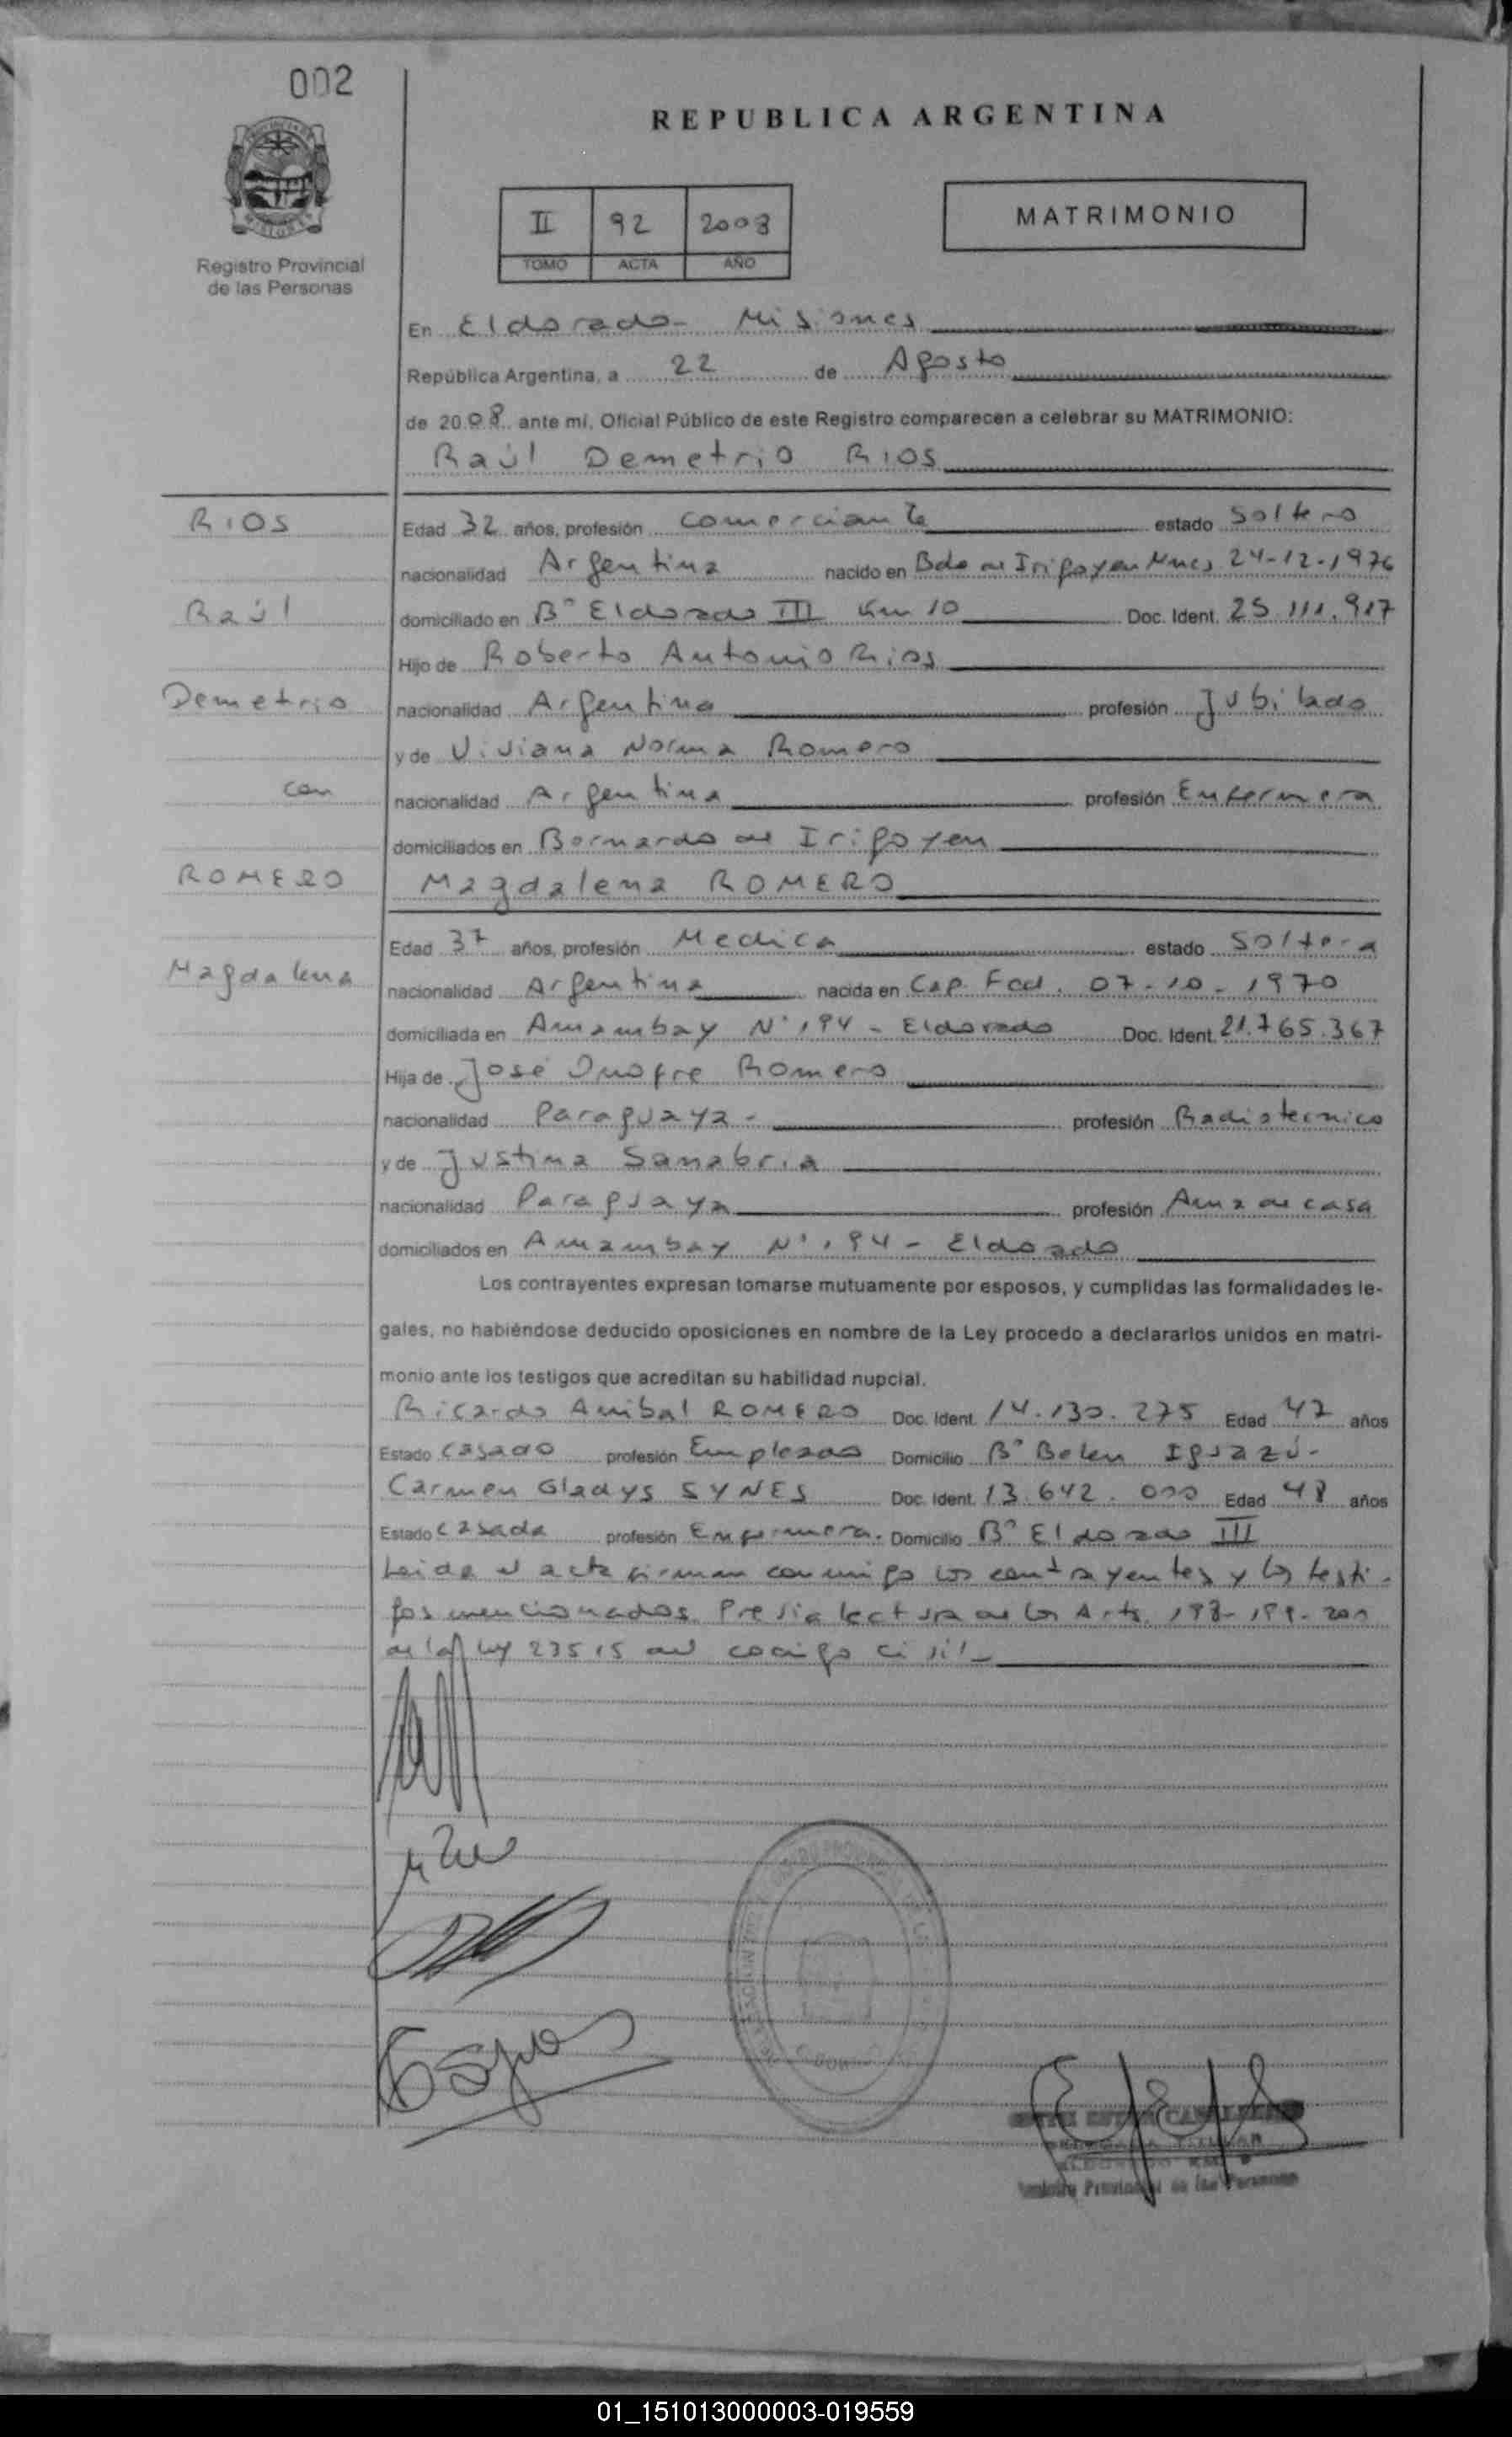 002
REPUBLICA ARGENTINA
II 92 2008
TOMO ACTA AÑO
MATRIMONIO
Registro Provincial
de las Personas
En Eldorado - Misiones
República Argentina, a 22 de Agosto
de 2008 ante mí, Oficial Público de este Registro comparecen a celebrar su MATRIMONIO:
Raúl Demetrio RIOS
RIOS
Raúl
Demetrio
con
ROMERO
Magdalena
Edad 32 años, profesión comerciante estado Soltero
nacionalidad Argentina nacido en Bdo de Irigoyen Mnes 24-12-1976
domiciliado en B° Eldorado III Km 10 Doc. Ident. 25.111.917
Hijo de Roberto Antonio Rios
nacionalidad Argentina profesión Jubilado
y de Viviana Norma Romero
nacionalidad Argentina profesión Enfermera
domiciliados en Bernardo de Irigoyen
Magdalena ROMERO
Edad 37 años, profesión Medica estado Soltera
nacionalidad Argentina nacida en Cap. Fed. 07-10-1970
domiciliada en Amambay N° 194 - Eldorado Doc. Ident. 21.765.367
Hija de José Onofre Romero
nacionalidad Paraguaya - profesión Radiotecnico
y de Justina Sanabria
nacionalidad Paraguaya profesión Ama de casa
domiciliados en Amambay N° 194 - Eldorado
Los contrayentes expresan tomarse mutuamente por esposos, y cumplidas las formalidades le-
gales, no habiéndose deducido oposiciones en nombre de la Ley procedo a declararlos unidos en matri-
monio ante los testigos que acreditan su habilidad nupcial.
Ricardo Anibal ROMERO Doc. Ident. 14.130.275 Edad 47 años
Estado Casado profesión Empleado Domicilio B° Belen Iguazú -
Carmen Gladys SYNES Doc. Ident. 13.642.000 Edad 48 años
Estado Casada profesión Enfermera. Domicilio B° Eldorado III
Leida el acta firman conmigo los contrayentes y los testi-
gos mencionados. Previa lectura de los Arts. 198-199-200
de la ley 23515 del codigo civil -
Registro Provincial de las Personas
01_151013000003-019559